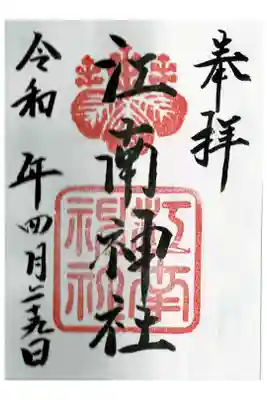 奉拝
江南神社
江南
神社
令和 年四月二十九日